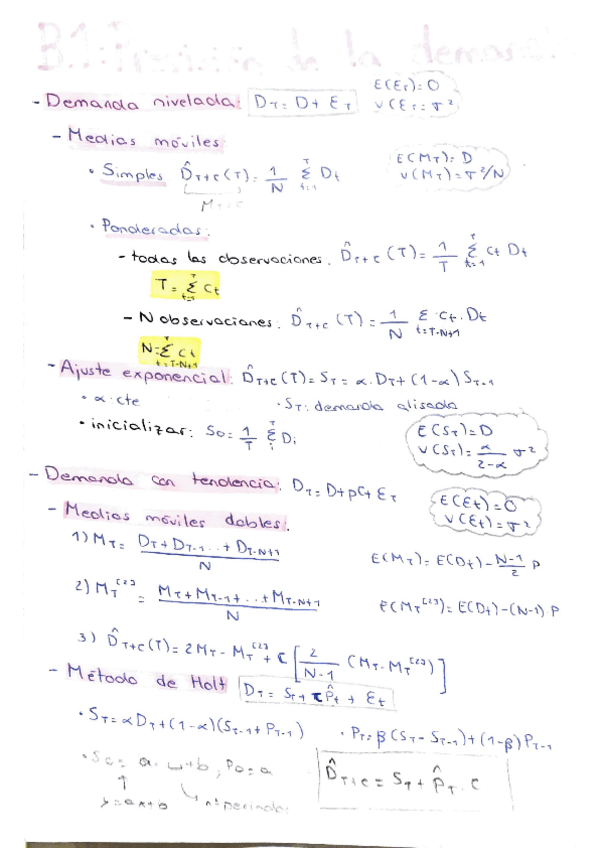 B.1: Previsión de la demanda
- Demanda nivelada: D_T = D + ε_T
E(ε_T) = 0
V(ε_T) = σ²
- Medias móviles:
• Simples D̂_T+τ(T) = 1/N Σ_{t=1}^{T} D_t
E(M_T) = D
V(M_T) = σ²/N
• Ponderadas:
- todas las observaciones. D̂_T+τ(T) = 1/T Σ_{t=1}^{T} C_t D_t
T = Σ_{t=1}^{T} C_t
- N observaciones. D̂_T+τ(T) = 1/N Σ_{t=T-N+1} C_t · D_t
N = Σ_{t=T-N+1}^{T} C_t
- Ajuste exponencial: D̂_T+τ(T) = S_T = α · D_T + (1-α) S_T-1
• α: cte
• S_T: demanda alisada
• inicializar: S_0 = 1/T Σ_{i}^{T} D_i
E(S_T) = D
V(S_T) = α/2-α σ²
- Demanda con tendencia: D_T = D + p·t + ε_T
E(ε_t) = 0
V(ε_t) = σ²
- Medias móviles dobles:
1) M_T = D_T + D_T-1 ... + D_T-N+1 / N
E(M_T) = E(D_t) - N-1/2 P
2) M_T^[2] = M_T + M_T-1 + ... + M_T-N+1 / N
E(M_T^[2]) = E(D_t) - (N-1) P
3) D̂_T+τ(T) = 2M_T - M_T^[2] + τ [2/N-1 (M_T - M_T^[2])]
- Método de Holt D_T = S_T + τP̂_t + ε_t
• S_T = α D_T + (1-α)(S_T-1 + P_T-1)
• P_T = β (S_T - S_T-1) + (1-β) P_T-1
• S_0 = a · + b ; P_0 = a
D̂_T+τ = S_T + P̂_T · τ
y = ax + b
nº periodos